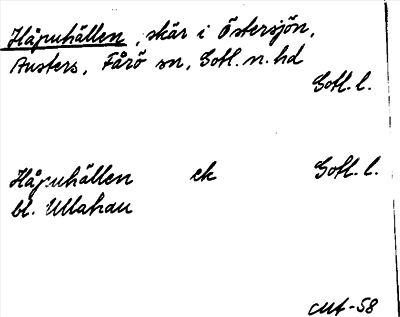 Håpuhällen, skär i Östersjön,
Austers, Fårö sn, Gotl. n. hd
Gotl. l.
Håpuhällen ek Gotl. l.
bl. Ullahau
-58